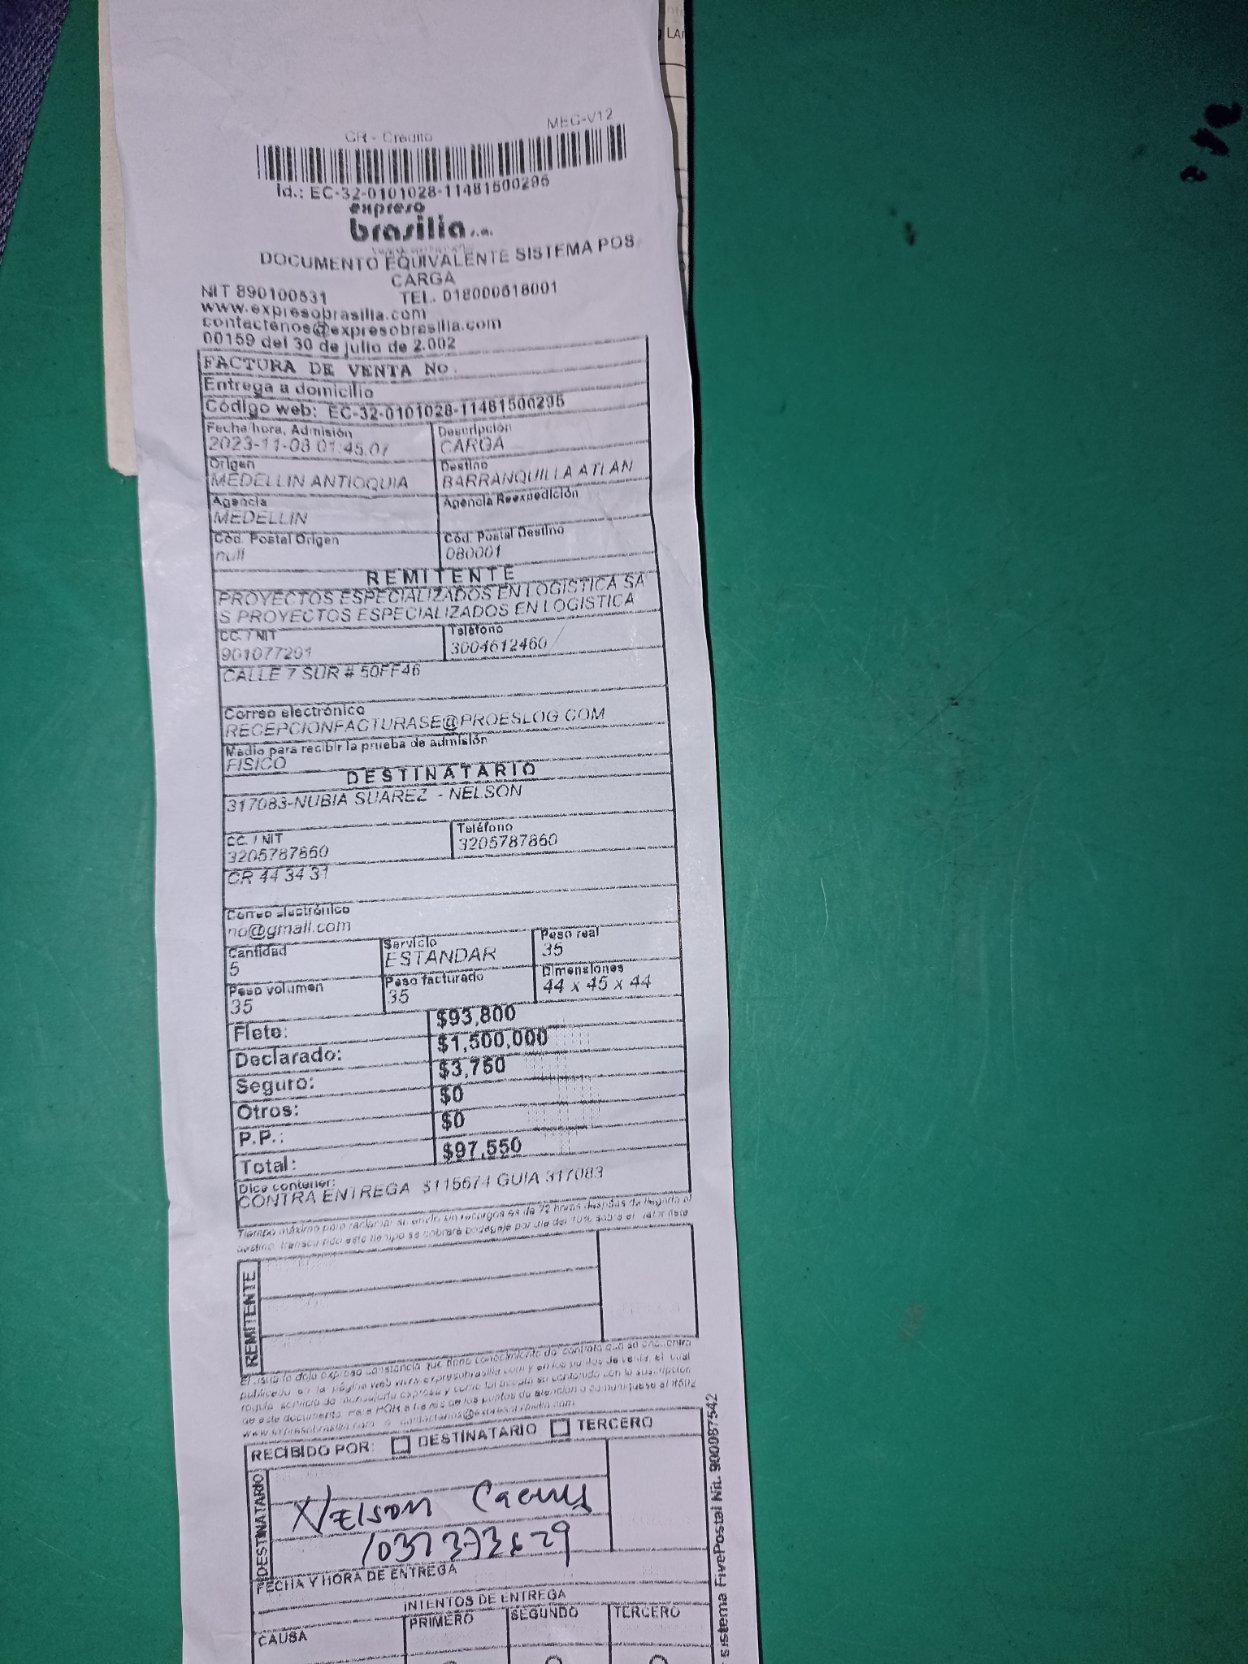 CR - Crédito MEC-V12
Id.: EC-32-0101028-11481500295
expreso
brasilia s.a.
DOCUMENTO EQUIVALENTE SISTEMA POS
CARGA
NIT 890100531 TEL. 018000618001
www.expresobrasilia.com
contactenos@expresobrasilia.com
00159 del 30 de julio de 2.002
FACTURA DE VENTA No.
Entrega a domicilio
Código web: EC-32-0101028-11481500295
Fecha/hora, Admisión Descripción
2023-11-08 01:45:07 CARGA
Origen Destino
MEDELLIN ANTIOQUIA BARRANQUILLA ATLAN
Agencia Agencia Reexpedición
MEDELLIN
Cód. Postal Origen Cód. Postal Destino
null 080001
REMITENTE
PROYECTOS ESPECIALIZADOS EN LOGISTICA SA
S PROYECTOS ESPECIALIZADOS EN LOGISTICA
CC. / NIT Teléfono
901077291 3004612460
CALLE 7 SUR # 50FF46
Correo electrónico
RECEPCIONFACTURASE@PROESLOG.COM
Medio para recibir la prueba de admisión
FISICO
DESTINATARIO
317083-NUBIA SUAREZ - NELSON
CC. / NIT Teléfono
3205787860 3205787860
CR 44 34 31
Correo electrónico
no@gmail.com
Cantidad Servicio Peso real
5 ESTANDAR 35
Peso volumen Peso facturado Dimensiones
35 35 44 x 45 x 44
Flete: $93,800
Declarado: $1,500,000
Seguro: $3,750
Otros: $0
P.P.: $0
Total: $97,550
Dice contener:
CONTRA ENTREGA $115674 GUIA 317083
Tiempo máximo para reclamar su envío sin recargos es de 72 horas después de llegado al
destino, transcurrido este tiempo se cobrará bodegaje por día del 10% sobre el valor
REMITENTE
El usuario deja expresa constancia que tiene conocimiento del contrato que se encuentra
publicado en la página web www.expresobrasilia.com y en los puntos de venta, el cual
regula servicio de mensajería expresa y carga
de este documento. Para PQR a través de los puntos de atención o comuníquese al
www.expresobrasilia.com o contactenos@expresobrasilia.com
RECIBIDO POR: DESTINATARIO TERCERO
DESTINATARIO
Nelson
FECHA Y HORA DE ENTREGA
INTENTOS DE ENTREGA
CAUSA PRIMERO SEGUNDO TERCERO
sistema FivePostal Nit. 900087542